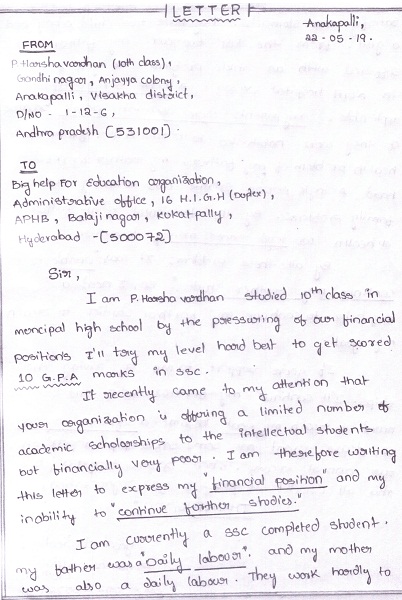 LETTER
Anakapalli,
22-05-19.
FROM
P. Harsha vardhan (10th class),
Gandhi nagar, Anjayya colony,
Anakapalli, Visakha district,
D/NO - 1-12-6,
Andhra pradesh [531001].
TO
Big help For Education organization,
Administrative office, 16 H.I.G.H (Duplex),
APHB, Balaji nagar, Kukatpally,
Hyderabad -[500072]
Sir,
I am P. Harsha vardhan studied 10th class in
moncipal high school by the pressuring of our financial
positions I'll try my level hard best to get scored
10 G.P.A marks in ssc.
It recently came to my attention that
your organization is offering a limited number of
academic scholarships to the intellectual students
but financially very poor. I am therefore writing
this letter to express my "financial position" and my
inability to "continue further studies."
I am currently a ssc completed student.
my father was a "Daily labour". and my mother
was also a daily labour. They work hardly to